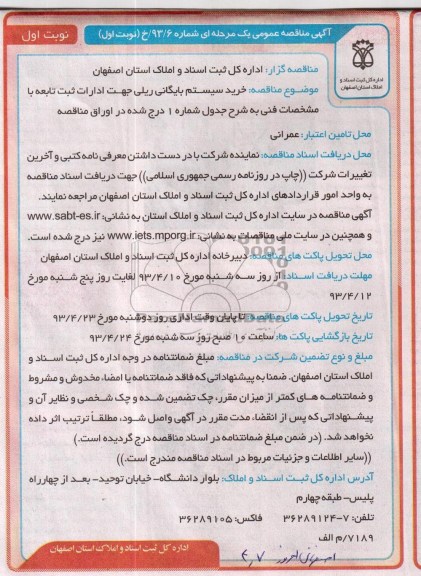 آگهی مناقصه عمومی یک مرحله ای شماره ۹۳/۶/خ (نوبت اول)
نوبت اول
اداره کل ثبت اسناد و
املاک استان اصفهان
مناقصه گزار: اداره کل ثبت اسناد و املاک استان اصفهان
موضوع مناقصه: خرید سیستم بایگانی ریلی جهت ادارات ثبت تابعه با
مشخصات فنی به شرح جدول شماره ۱ درج شده در اوراق مناقصه
محل تامین اعتبار: عمرانی
محل دریافت اسناد مناقصه: نماینده شرکت با در دست داشتن معرفی نامه کتبی و آخرین
تغییرات شرکت ((چاپ در روزنامه رسمی جمهوری اسلامی)) جهت دریافت اسناد مناقصه
به واحد امور قراردادهای اداره کل ثبت اسناد و املاک استان اصفهان مراجعه نمایند.
آگهی مناقصه در سایت اداره کل ثبت اسناد و املاک استان به نشانی: www.sabt-es.ir
و همچنین در سایت ملی مناقصات به نشانی: www.iets.mporg.ir نیز درج شده است.
محل تحویل پاکت های مناقصه: دبیرخانه اداره کل ثبت اسناد و املاک استان اصفهان
مهلت دریافت اسناد: از روز سه شنبه مورخ ۹۳/۴/۱۰ لغایت روز پنج شنبه مورخ
۹۳/۴/۱۲
تاریخ تحویل پاکت های مناقصه: تا پایان وقت اداری روز دوشنبه مورخ ۹۳/۴/۲۳
تاریخ بازگشایی پاکت ها: ساعت ۱۰ صبح روز سه شنبه مورخ ۹۳/۴/۲۴
مبلغ و نوع تضمین شرکت در مناقصه: مبلغ ضمانتنامه در وجه اداره کل ثبت اسناد و
املاک استان اصفهان. ضمنا به پیشنهاداتی که فاقد ضمانتنامه یا امضا، مخدوش و مشروط
و ضمانتنامه های کمتر از میزان مقرر، چک تضمین شده و چک شخصی و نظایر آن و
پیشنهاداتی که پس از انقضا، مدت مقرر در آگهی واصل شود، مطلقاً ترتیب اثر داده
نخواهد شد. (در ضمن مبلغ ضمانتنامه در اسناد مناقصه درج گردیده است.)
((سایر اطلاعات و جزئیات مربوط در اسناد مناقصه مندرج است.))
آدرس اداره کل ثبت اسناد و املاک: بلوار دانشگاه- خیابان توحید- بعد از چهارراه
پلیس- طبقه چهارم
تلفن: ۷-۳۶۲۸۹۱۲۴ فاکس: ۳۶۲۸۹۱۰۵
۷۱۸۹/م الف
اداره کل ثبت اسناد و املاک استان اصفهان
۴،۷